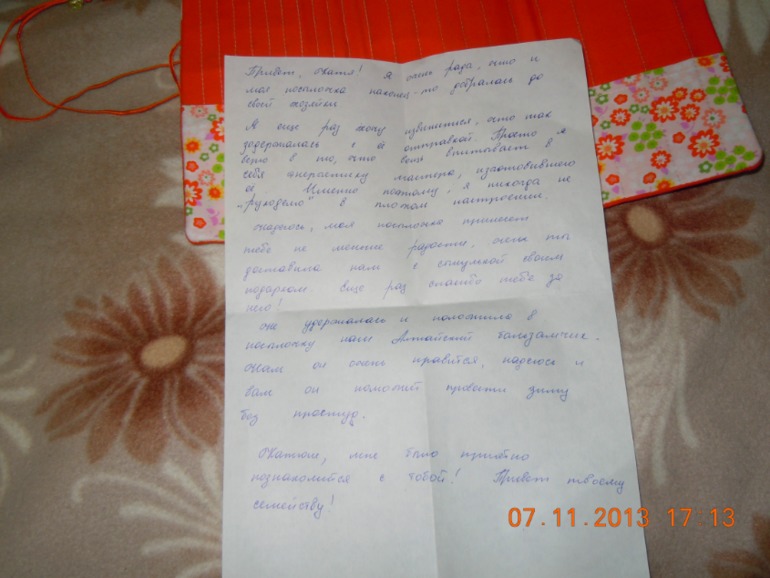 Привет, Катя! Я очень рада, что и
моя посылочка наконец-то добралась до
своей хозяйки
Я еще раз хочу извиниться, что так
задержалась с её отправкой Просто я
верю в то, что вещь впитывает в
себя энергетику мастера, изготовившего
её Именно поэтому, я никогда не
"рукоделю" в плохом настроении.
Надеюсь, моя посылочка принесет
тебе не меньше радости, чем ты
доставила нам с сынулькой своим
подарком. Еще раз спасибо тебе за
него!
Не удержалась и положила в
посылочку наш Алтайский бальзамчик.
Нам он очень нравится, надеюсь и
вам он поможет провести зиму
без простуд.
Катюш, мне было приятно
познакомится с тобой! Привет твоему
семейству!
07.11.2013 17:13